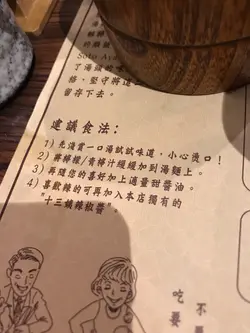 Soto Ay
了湯頭
務、堅守將這
留存下去。
建議食法：
1) 先淺嘗一口湯試試味道，小心燙口！
2) 將檸檬/青檸汁緩緩加到湯麵上。
3) 再隨您的喜好加上適量甜醬油。
4) 喜歡辣的可再加入本店獨有的
"十三姨辣椒醬"。
不
吃
要